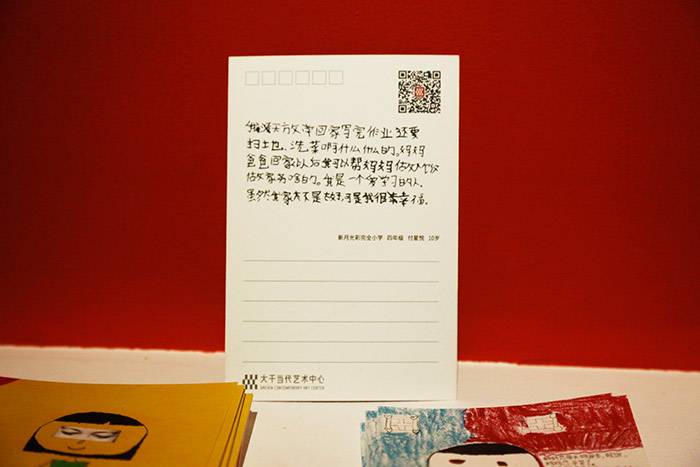 我每天放学回家写完作业还要
扫土也、洗菜啊什么什么的。妈妈
爸爸回家以后我可以帮妈妈做饭
做家务啥的。我是一个爱学习的人.
虽然我家不是 可是我很幸福.
新月光彩完全小学 四年级 付星悦 10岁
大千当代艺术中心
DAQIAN CONTEMPORARY ART CENTER